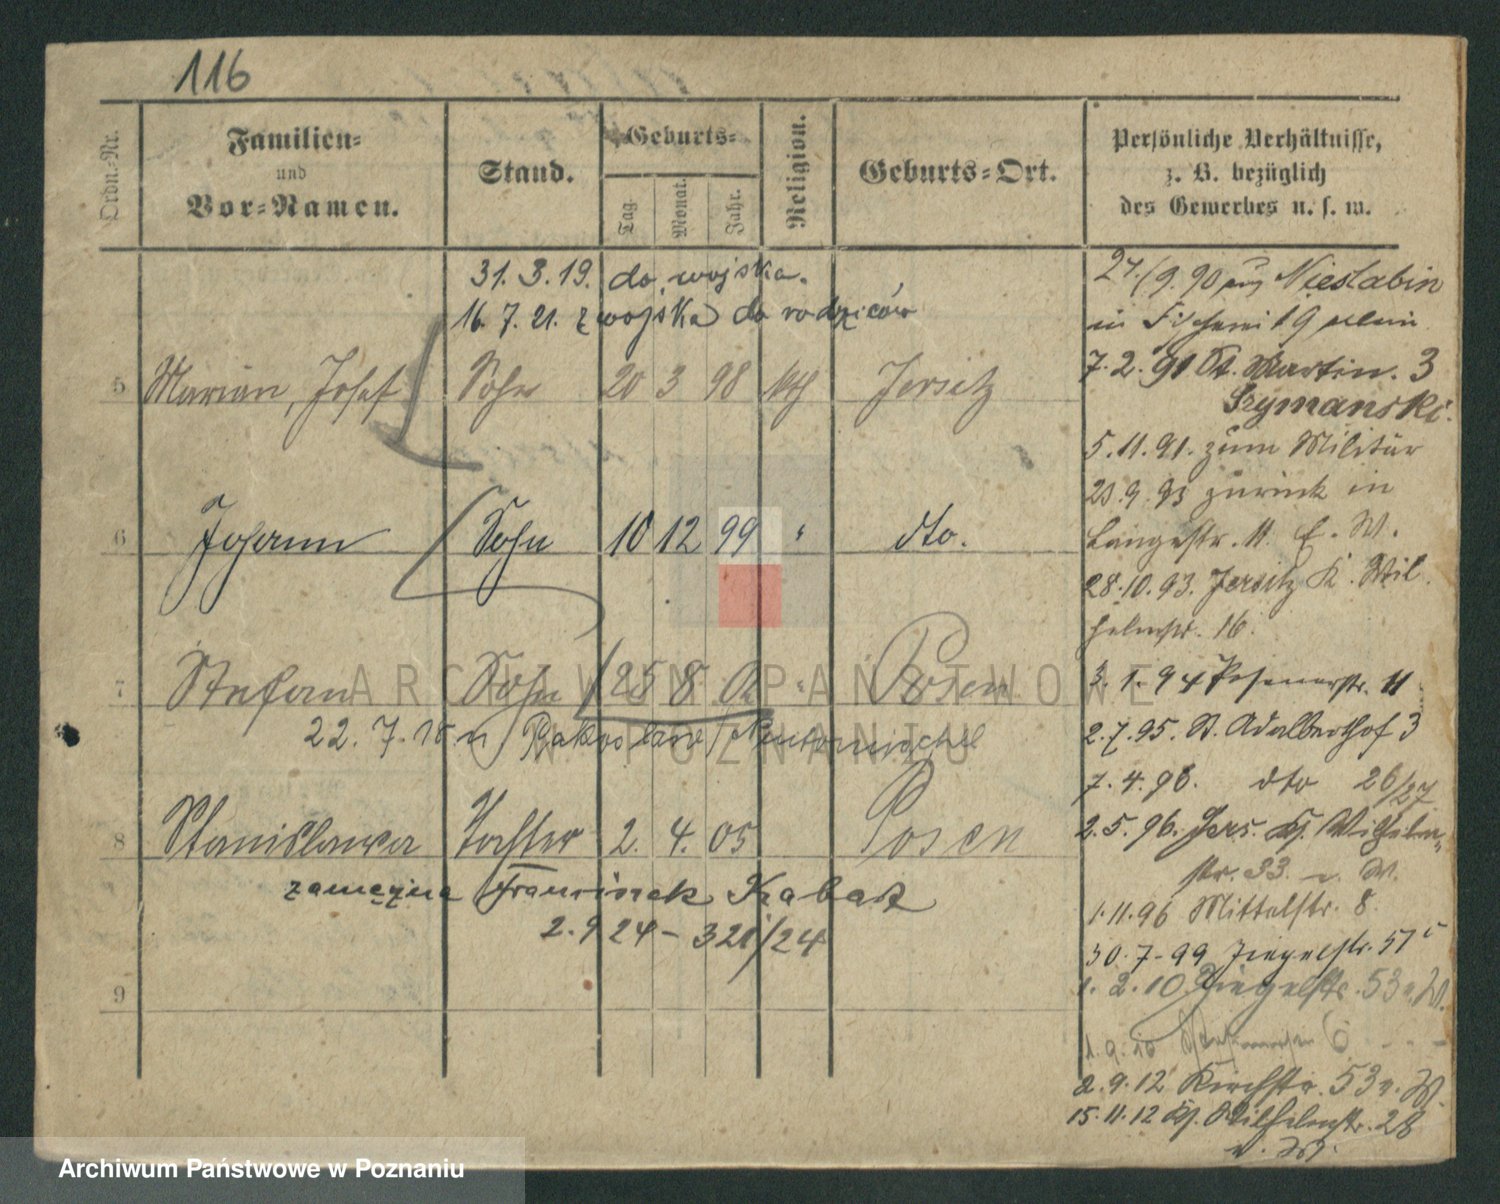 116
Ordn.-Nr.
Familien-
und
Vor-Namen.
Stand.
Geburts-
Tag.
Monat.
Jahr.
Religion.
Geburts-Ort.
Persönliche Verhältnisse,
z. B. bezüglich
des Gewerbes u. s. w.
31.3.19. do wojska.
16.7.21. z wojska do rodziców
5 Marian, Josef Sohn 20 3 98 kth Jersitz
6 Johann Sohn 10 12 99 " dto.
7 Stefan Sohn 25 8 02 " Posen
22.7.15 n
8 Stanislawa Tochter 2. 4. 05 Posen
zamężna Franciszek Kabat
2.9 24 - 321/24
9
27/9.90 aus Nieslabin
in
7.2.91 St. Martin. 3
Szymanski.
5.11.91. zum Militär
23.9.93 zurück in
Langestr. 11. E. W.
28.10.93. Jersitz K. Wil
helmstr. 16.
3.1.94 Posenerstr. 11
2.7.95. St. Adalberthof 3
7.4.96. dto 26/27
2.5.96. Jers. Ks. Wilhelm-
str. 33. v. W.
1.11.96 Mittelstr. 8.
30.7-99 Ziegelstr. 57
1.2.10 Ziegelstr. 53 v. W.
1.9.10 6
2.9.12 Kirchstr. 53 v. W.
15.11.12 Ks. Wilhelmstr. 28
v. W.
ARCHIWUM PAŃSTWOWE
W POZNANIU
Archiwum Państwowe w Poznaniu